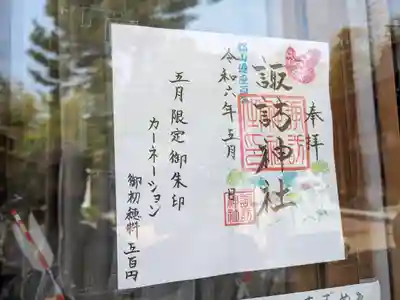 奉拝
諏訪神社
令和六年五月 日
五月限定御朱印
カーネーション
御初穂料五百円